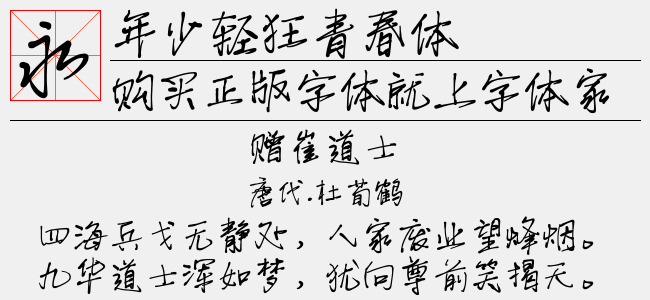 永
年少轻狂青春体
购买正版字体就上字体家
赠崔道士
唐代.杜荀鹤
四海兵戈无静处，人家废业望烽烟。
九华道士浑如梦，犹向尊前笑揭天。